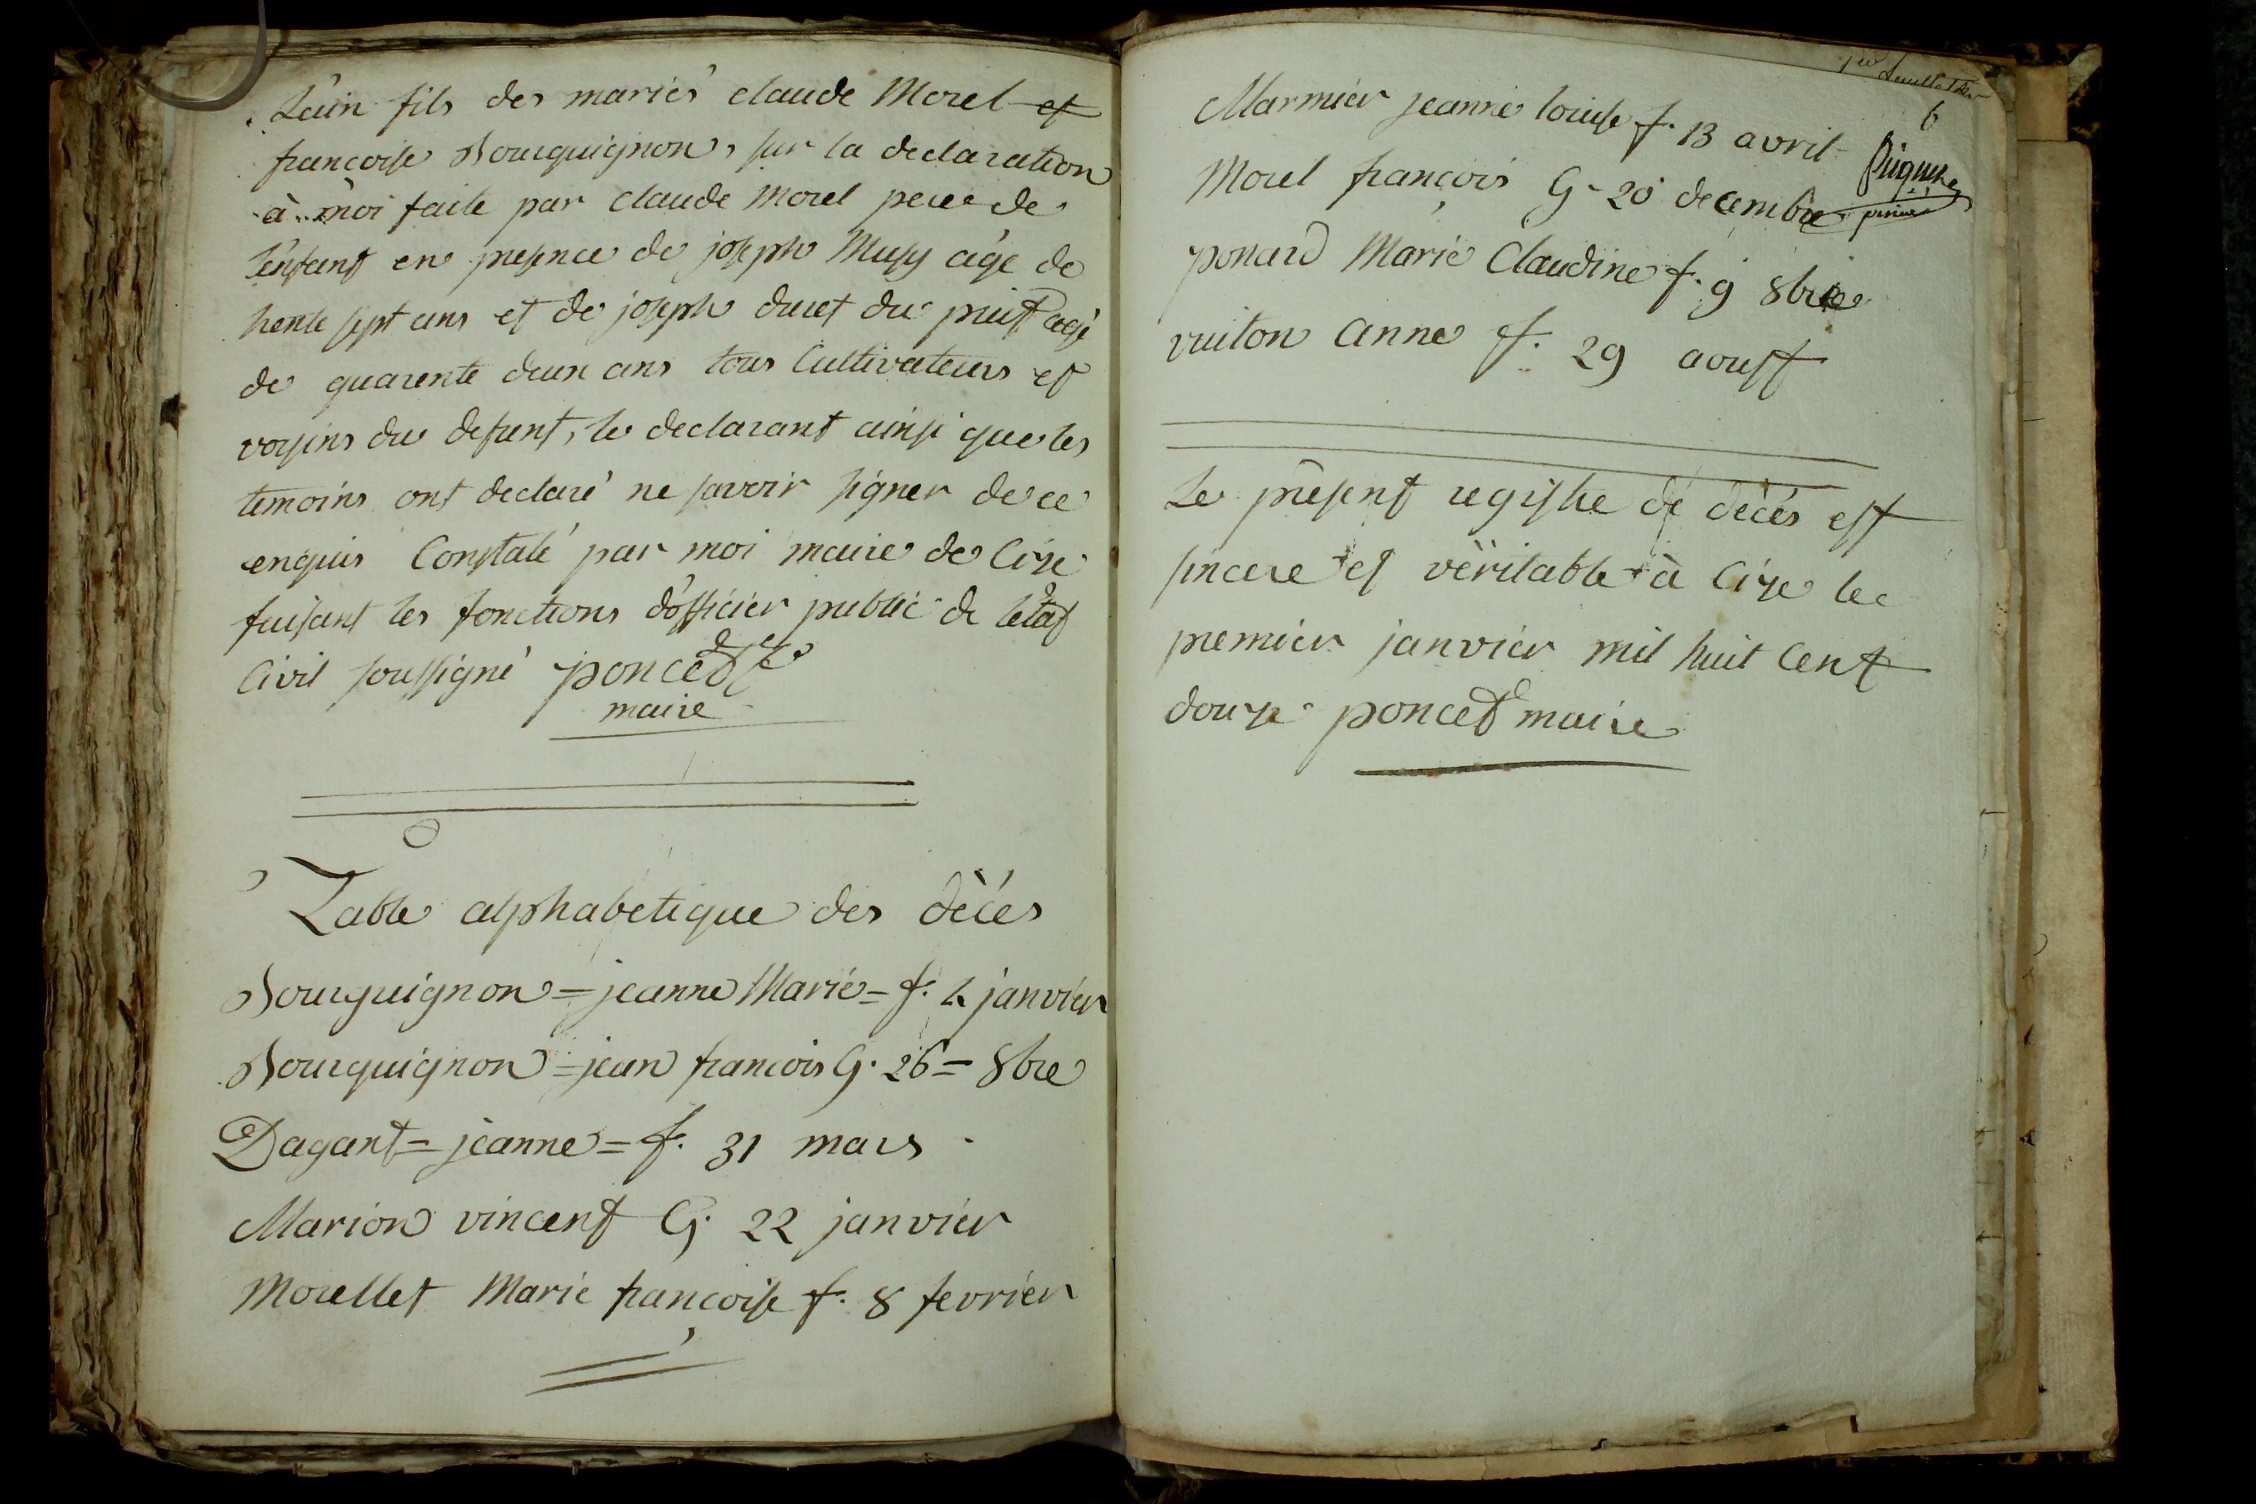 L'ain fils des mariés claude Morel et
françoise Bourguignon, sur la declaration
à moi faite par claude Morel pere de
l'enfant en presence de joseph Mussy agé de
trente sept ans et de joseph ducret du puit agé
de quarente deux ans tous Cultivateurs et
voysins du defunt, le declarant ainsi que les
temoins ont declaré ne savoir signer de ce
enquis Constaté par moi maire de Cize
faisant les fonctions d'officier public de l'etat
Civil soussigné poncet
maire
Table alphabetique des décés
Bourguignon = jeanne Marie = f. 2 janvier
Bourguignon = jean francois G. 26 = 8bre
Dagant = jeanne = f. 31 mars
Marion vincent G. 22 janvier
Morellet Marie françoise f. 8 fevrier
6
Marmier jeanne louise f. 13 avril
Morel françois G. 20 decembre
ponard Marie Claudine f. 9 8bre
vuiton anne f. 29 aoust
Le présent registre de décés est
sincere et véritable à Cize le
premier janvier mil huit Cent
douze poncet maire